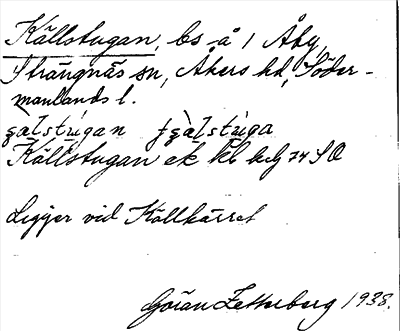 Källstugan, bs å 1 Åby,
Strängnäs sn, Åkers hd, Söder-
manlands l.
Källstugan ek Kbl 74 SO
Ligger vid Källkärret
Göran Zetterberg 1938.